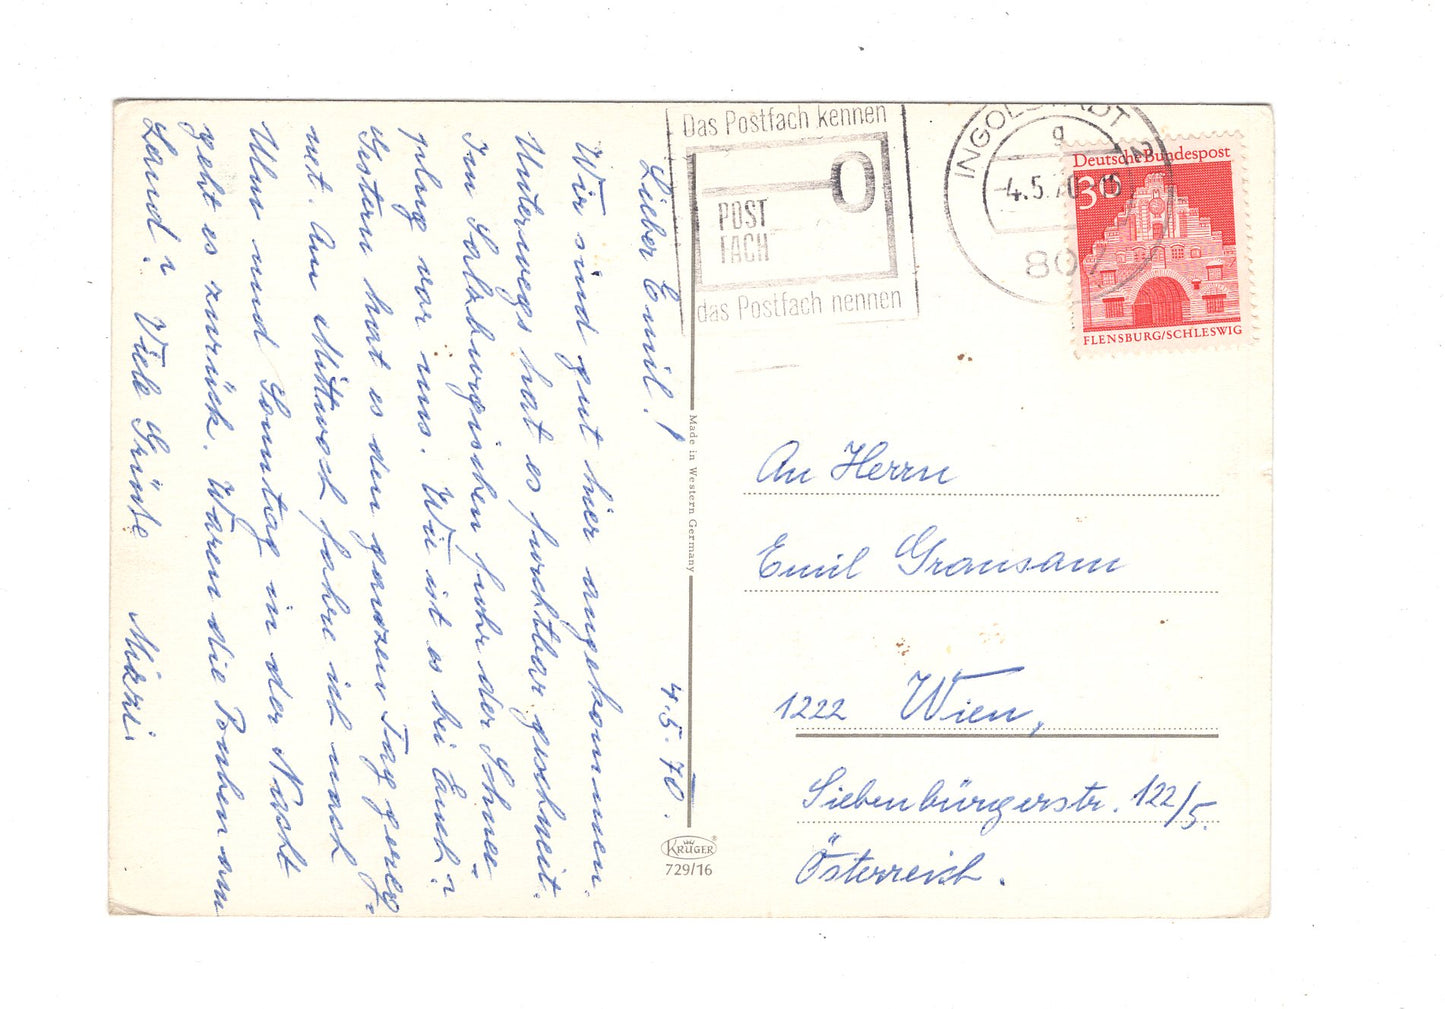 Lieber Emil! 4.5.70.
Wir sind gut hier angekommen.
Unterwegs hat es furchtbar geschneit.
Im Salzburgischen fuhr der Schnee-
pflug vor uns. Wie ist es bei Euch?
Gestern hat es den ganzen Tag gereg-
net. Am Mittwoch fahre ich nach
Ulm und Sonntag in der Nacht
geht es zurück. Waren die Buben am
Land? Viele Grüße Mizzi.
Das Postfach kennen
POST
FACH
das Postfach nennen
INGOLSTADT 2
g
-4.5.70.-16
807
Deutsche Bundespost
30
FLENSBURG/SCHLESWIG
Made in Western Germany
An Herrn
Emil Gransam
1222 Wien,
Siebenbürgerstr. 122/5.
Österreich.
KRÜGER®
729/16